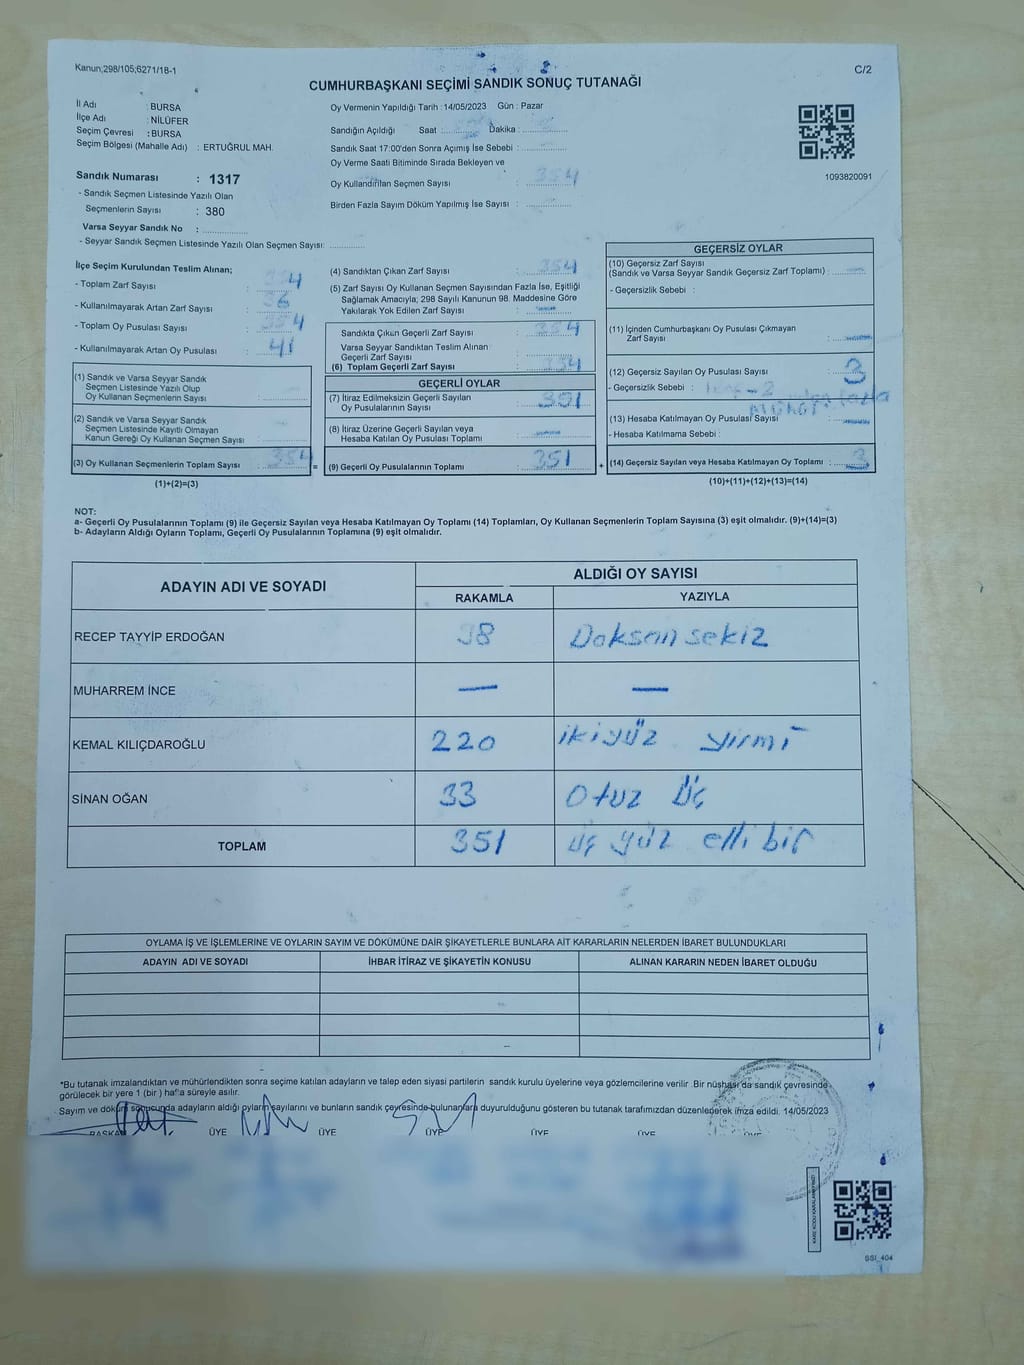 Kanun;298/105;6271/18-1
C/2
CUMHURBAŞKANI SEÇİMİ SANDIK SONUÇ TUTANAĞI
İl Adı : BURSA
İlçe Adı : NİLÜFER
Seçim Çevresi : BURSA
Seçim Bölgesi (Mahalle Adı) : ERTUĞRUL MAH.
Sandık Numarası : 1317
- Sandık Seçmen Listesinde Yazılı Olan
Seçmenlerin Sayısı : 380
Varsa Seyyar Sandık No :
- Seyyar Sandık Seçmen Listesinde Yazılı Olan Seçmen Sayısı:
Oy Vermenin Yapıldığı Tarih :14/05/2023 Gün : Pazar
Sandığın Açıldığı Saat : Dakika :
Sandık Saat 17:00'den Sonra Açımış İse Sebebi :
Oy Verme Saati Bitiminde Sırada Bekleyen ve
Oy Kullandırılan Seçmen Sayısı : 354
Birden Fazla Sayım Döküm Yapılmış İse Sayısı :
1093820091
İlçe Seçim Kurulundan Teslim Alınan;
- Toplam Zarf Sayısı :
- Kullanılmayarak Artan Zarf Sayısı :
- Toplam Oy Pusulası Sayısı :
- Kullanılmayarak Artan Oy Pusulası : 41
(1) Sandık ve Varsa Seyyar Sandık
Seçmen Listesinde Yazılı Olup
Oy Kullanan Seçmenlerin Sayısı :
(2) Sandık ve Varsa Seyyar Sandık
Seçmen Listesinde Kayıtlı Olmayan
Kanun Gereği Oy Kullanan Seçmen Sayısı :
(3) Oy Kullanan Seçmenlerin Toplam Sayısı : 354
(1)+(2)=(3)
=
(4) Sandıktan Çıkan Zarf Sayısı : 354
(5) Zarf Sayısı Oy Kullanan Seçmen Sayısından Fazla İse, Eşitliği
Sağlamak Amacıyla; 298 Sayılı Kanunun 98. Maddesine Göre
Yakılarak Yok Edilen Zarf Sayısı :
Sandıkta Çıkan Geçerli Zarf Sayısı : 354
Varsa Seyyar Sandıktan Teslim Alınan
Geçerli Zarf Sayısı :
(6) Toplam Geçerli Zarf Sayısı : 354
GEÇERLİ OYLAR
(7) İtiraz Edilmeksizin Geçerli Sayılan
Oy Pusulalarının Sayısı : 351
(8) İtiraz Üzerine Geçerli Sayılan veya
Hesaba Katılan Oy Pusulası Toplamı :
(9) Geçerli Oy Pusulalarının Toplamı : 351
+
GEÇERSİZ OYLAR
(10) Geçersiz Zarf Sayısı
(Sandık ve Varsa Seyyar Sandık Geçersiz Zarf Toplamı) :
- Geçersizlik Sebebi :
(11) İçinden Cumhurbaşkanı Oy Pusulası Çıkmayan
Zarf Sayısı :
(12) Geçersiz Sayılan Oy Pusulası Sayısı : 3
- Geçersizlik Sebebi :
(13) Hesaba Katılmayan Oy Pusulası Sayısı :
- Hesaba Katılmama Sebebi :
(14) Geçersiz Sayılan veya Hesaba Katılmayan Oy Toplamı : 3
(10)+(11)+(12)+(13)=(14)
NOT:
a- Geçerli Oy Pusulalarının Toplamı (9) ile Geçersiz Sayılan veya Hesaba Katılmayan Oy Toplamı (14) Toplamları, Oy Kullanan Seçmenlerin Toplam Sayısına (3) eşit olmalıdır. (9)+(14)=(3)
b- Adayların Aldığı Oyların Toplamı, Geçerli Oy Pusulalarının Toplamına (9) eşit olmalıdır.
ADAYIN ADI VE SOYADI
ALDIĞI OY SAYISI
RAKAMLA YAZIYLA
RECEP TAYYİP ERDOĞAN 98 Doksan sekiz
MUHARREM İNCE — —
KEMAL KILIÇDAROĞLU 220 ikiyüz yirmi
SİNAN OĞAN 33 Otuz üç
TOPLAM 351 üç yüz elli bir
OYLAMA İŞ VE İŞLEMLERİNE VE OYLARIN SAYIM VE DÖKÜMÜNE DAİR ŞİKAYETLERLE BUNLARA AİT KARARLARIN NELERDEN İBARET BULUNDUKLARI
ADAYIN ADI VE SOYADI İHBAR İTİRAZ VE ŞİKAYETİN KONUSU ALINAN KARARIN NEDEN İBARET OLDUĞU
*Bu tutanak imzalandıktan ve mühürlendikten sonra seçime katılan adayların ve talep eden siyasi partilerin sandık kurulu üyelerine veya gözlemcilerine verilir. Bir nüshası da sandık çevresinde
görülecek bir yere 1 (bir ) hafta süreyle asılır.
Sayım ve döküm sonucunda adayların aldığı oyların sayılarını ve bunların sandık çevresinde bulunanlara duyurulduğunu gösteren bu tutanak tarafımızdan düzenlenerek imza edildi. 14/05/2023
BAŞKAN ÜYE ÜYE ÜYE ÜYE ÜYE ÜYE
SSI_404